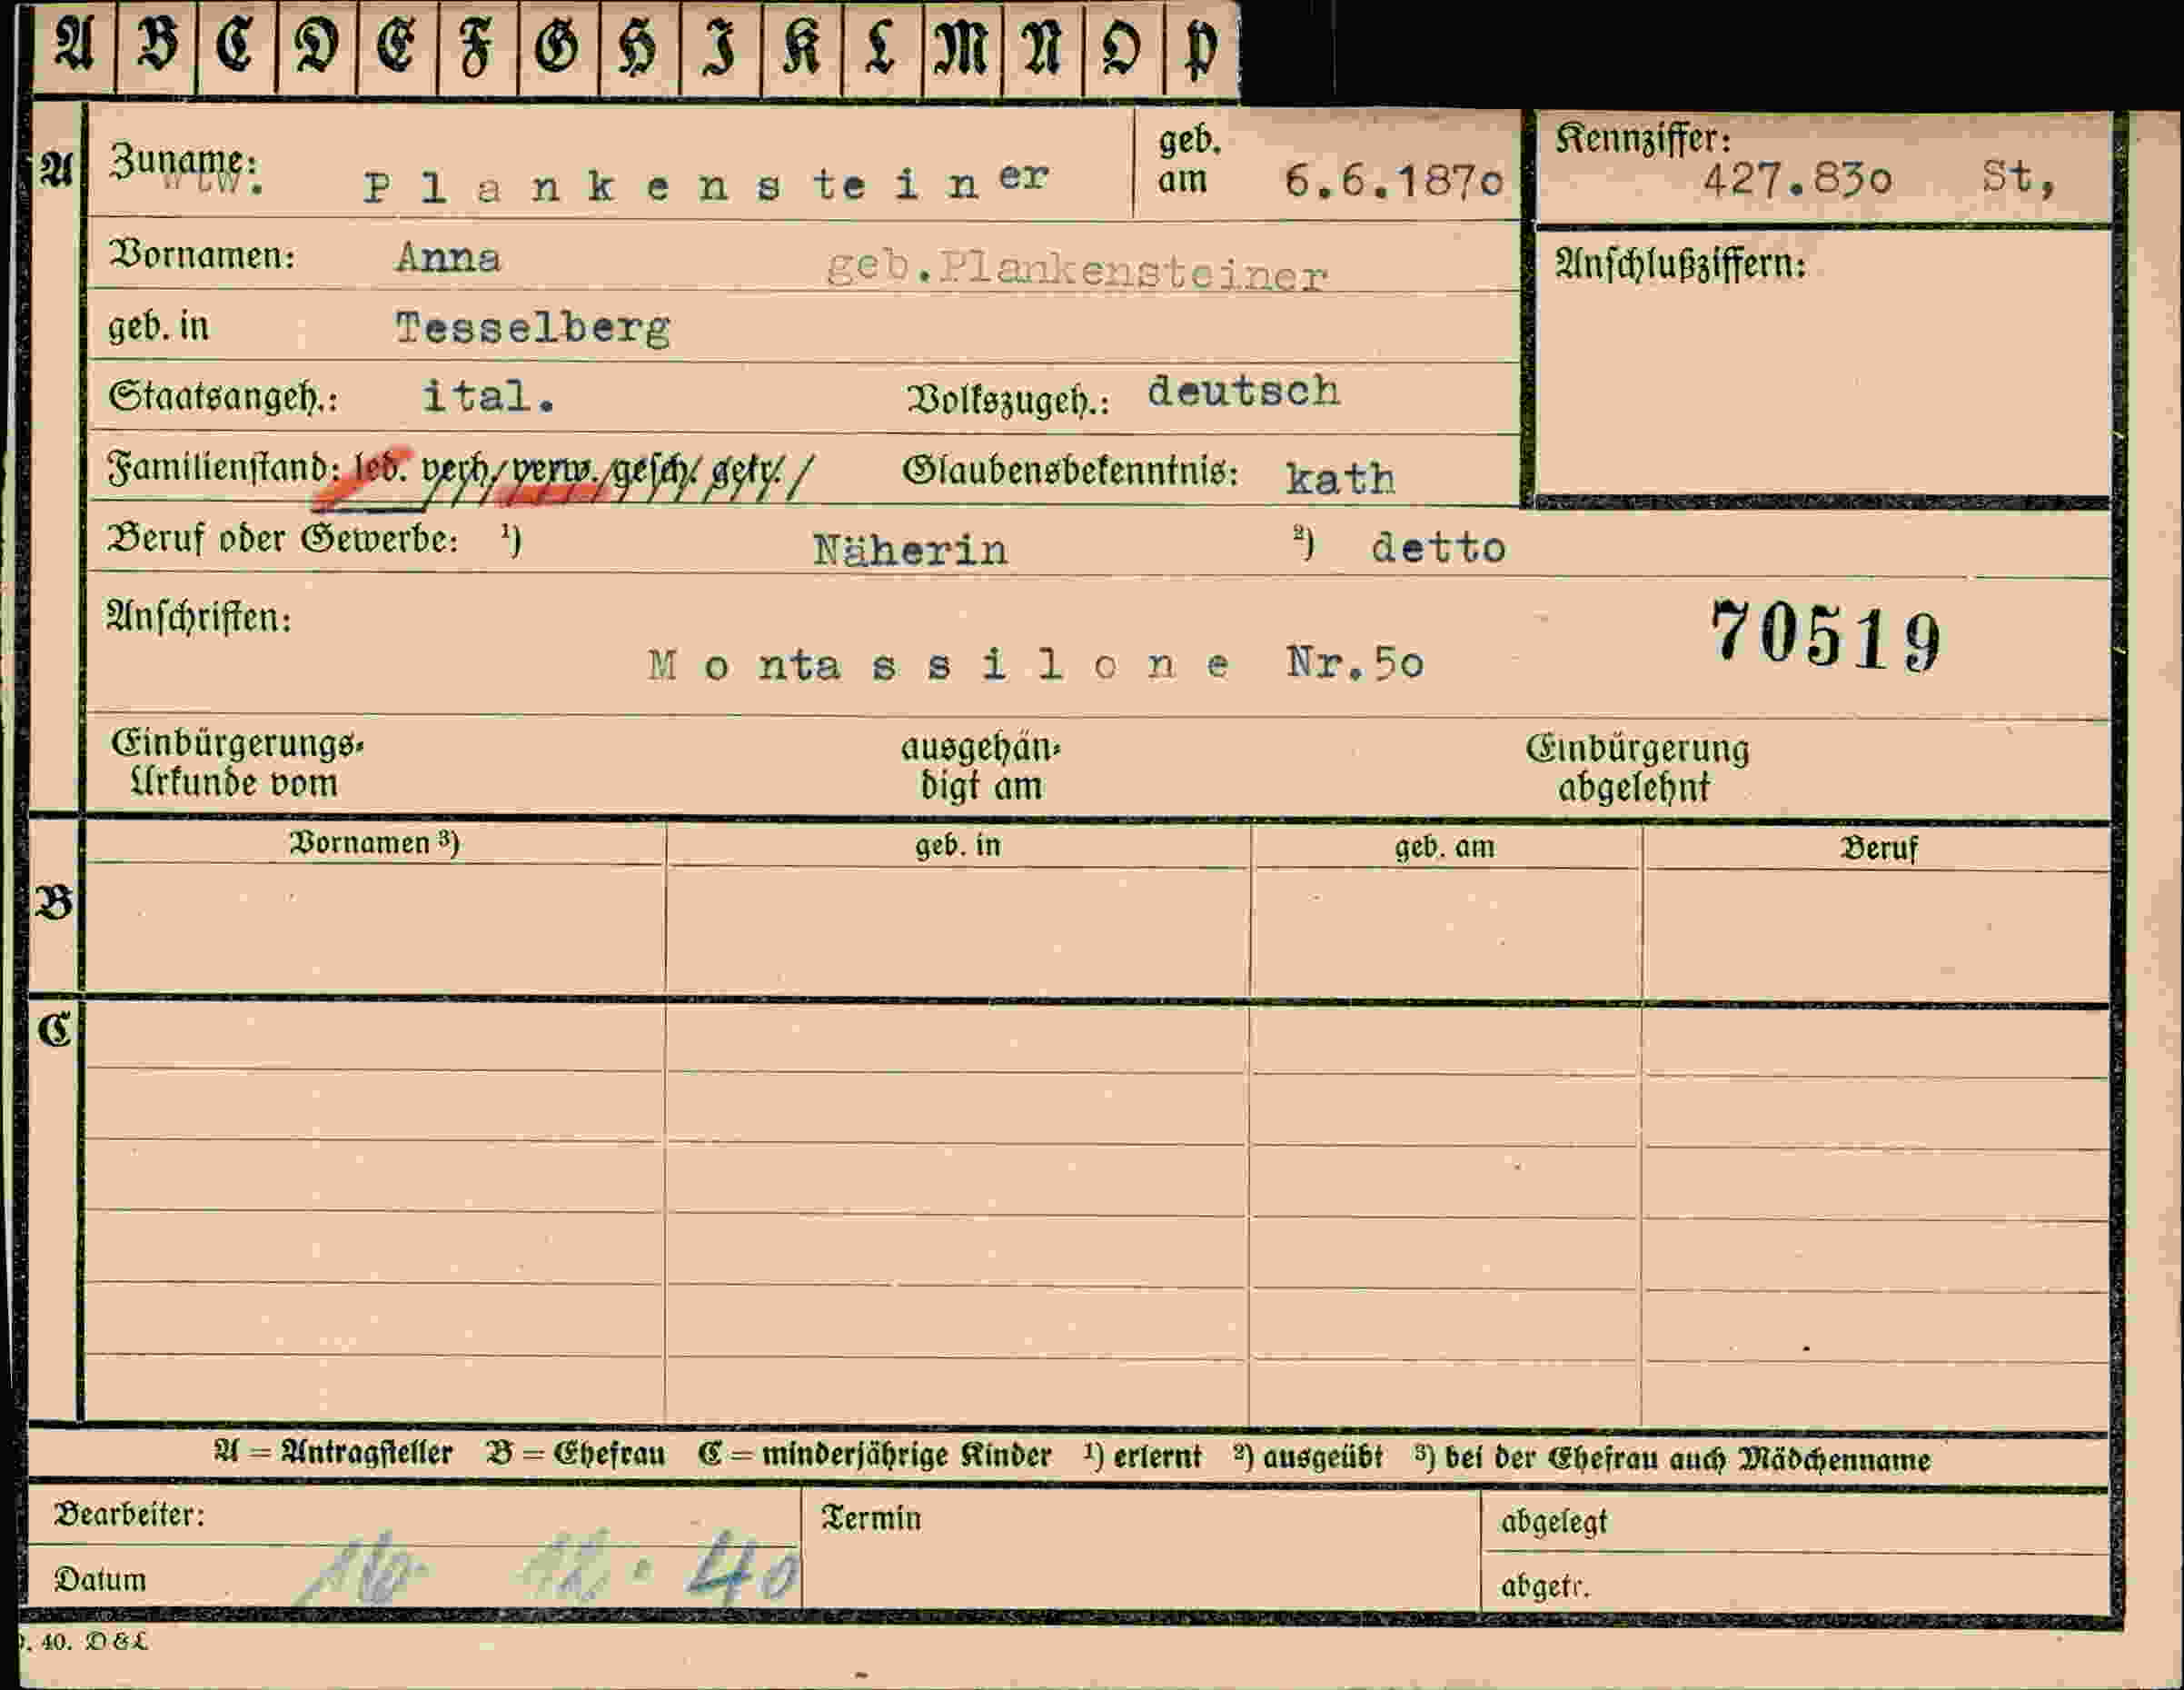 A B C D E F G H I K L M N O P
A Zuname: Wtw. Plankensteiner geb. am 6.6.1870 Kennziffer: 427.830 St,
Vornamen: Anna geb.Plankensteiner Anschlußziffern:
geb. in Tesselberg
Staatsangeh.: ital. Volkszugeh.: deutsch
Familienstand: led. verh/verw./gesch/ getr./ Glaubensbekenntnis: kath
Beruf oder Gewerbe: ¹) Näherin ²) detto
Anschriften: 70519
Montassilone Nr.50
Einbürgerungs- ausgehän- Einbürgerung
Urkunde vom digt am abgelehnt
Vornamen ³) geb. in geb. am Beruf
B
C
A = Antragsteller B = Ehefrau C = minderjährige Kinder ¹) erlernt ²) ausgeübt ³) bei der Ehefrau auch Mädchenname
Bearbeiter: Termin abgelegt
Datum 16. 12. 40 abgetr.
. 40. D & L